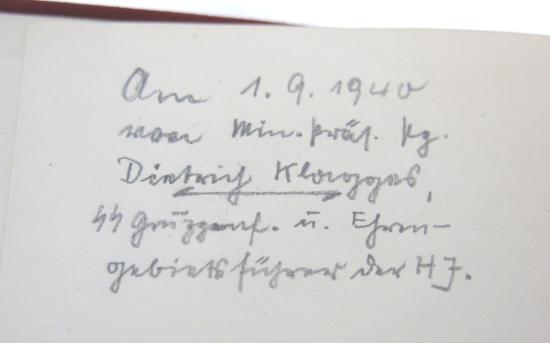 Am 1. 9. 1940
vom Min. präs. Pg.
Dietrich Klagges,
SS Gruppenf. u. Ehren-
gebietsführer der HJ.